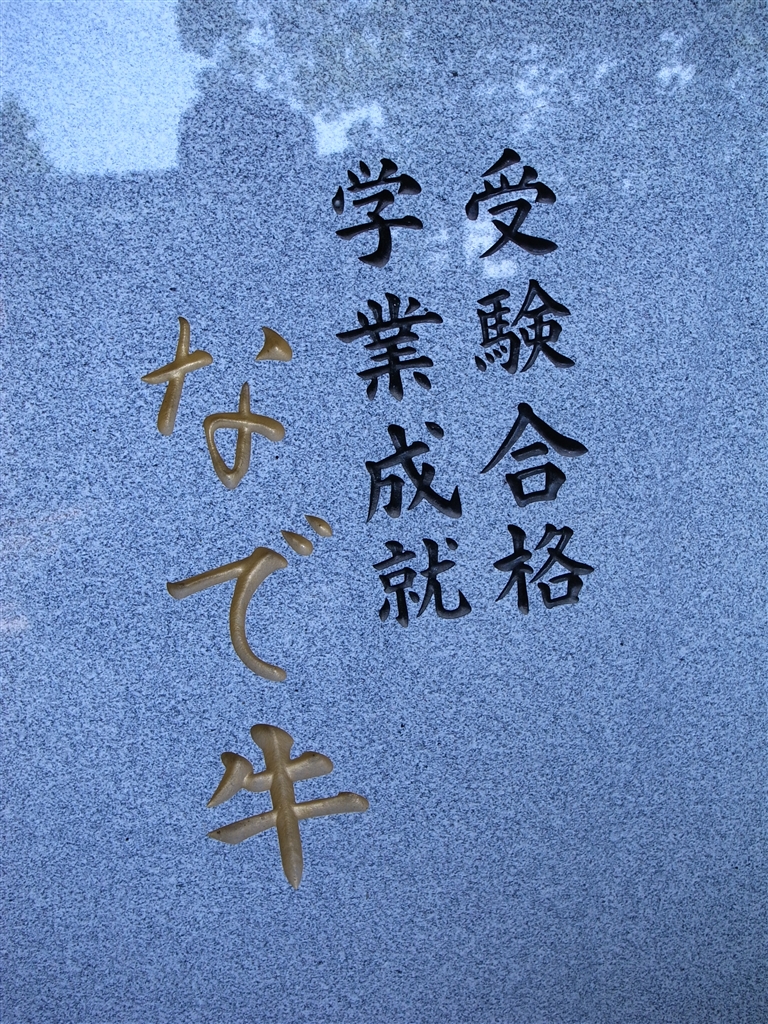 受験合格
学業成就
なで牛